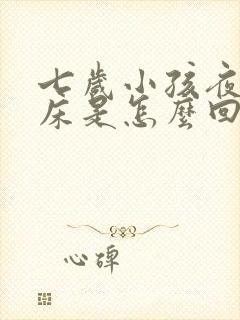 七歲小孩夜
床是怎麼回
心碑